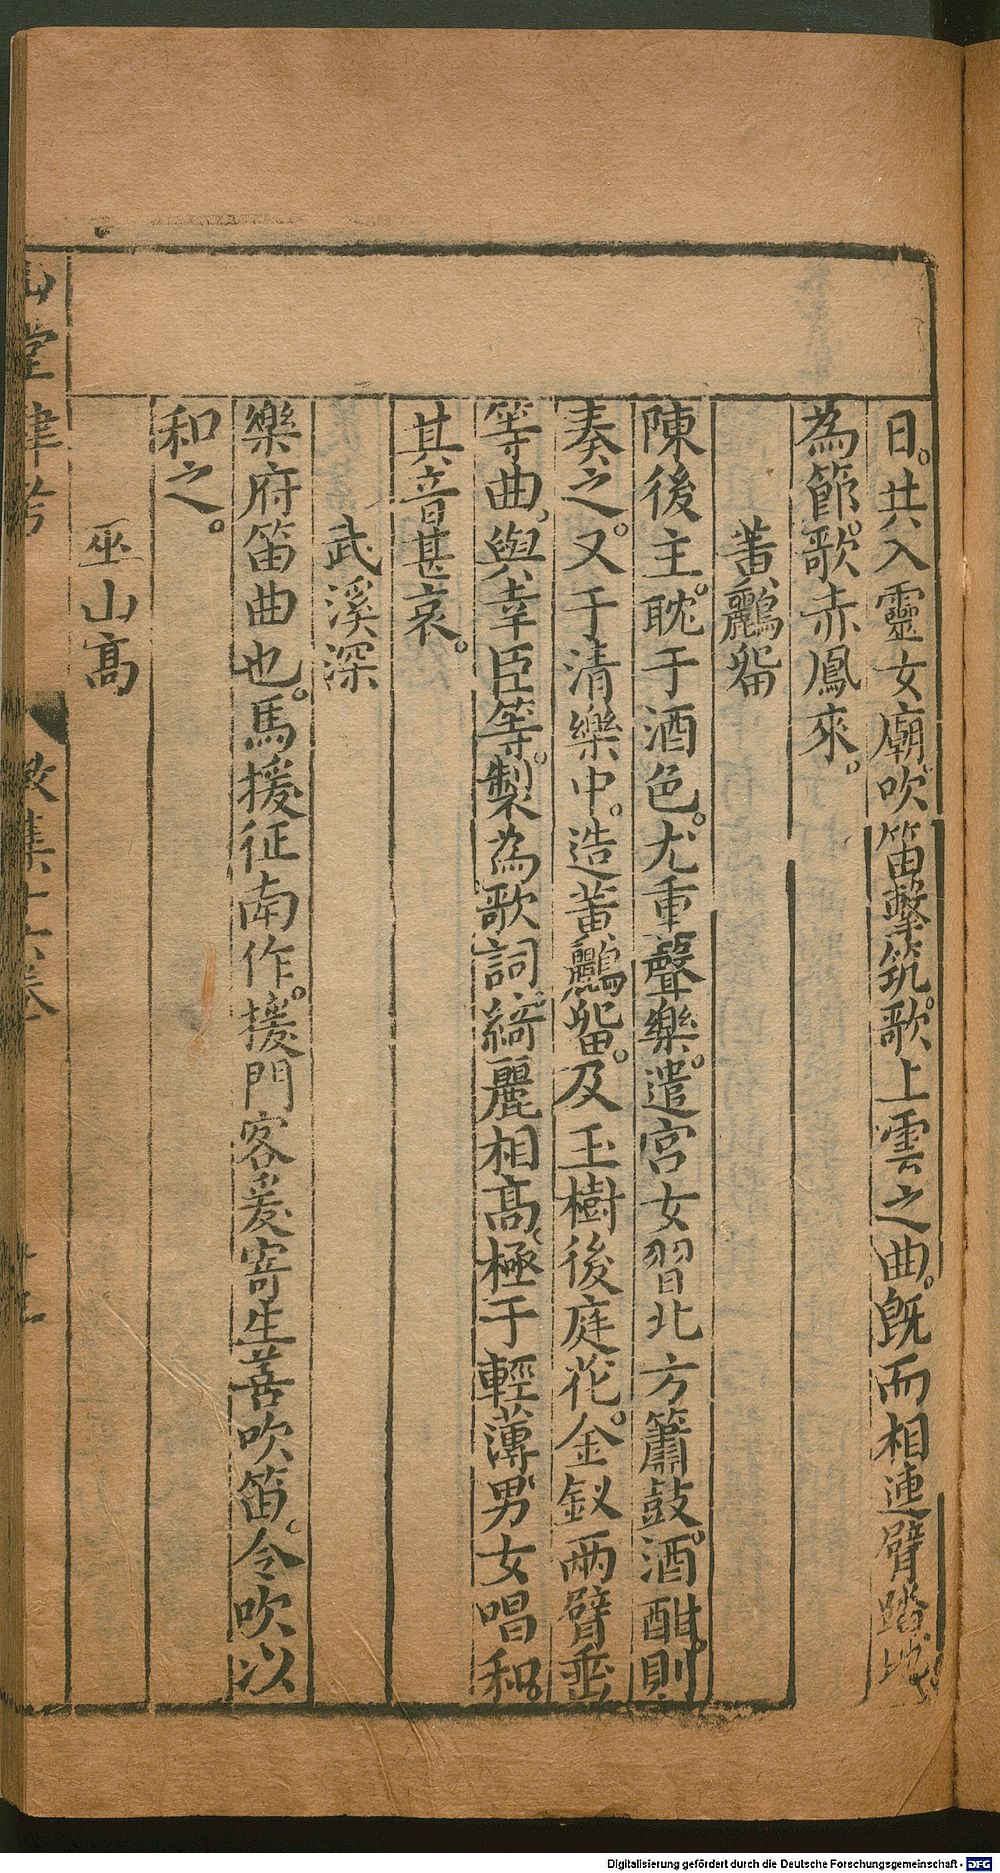 日。共入靈女廟。吹笛擊筑。歌上雲之曲。既而相連臂踏地
為節。歌赤鳳來。
黃鸝留
陳後主。耽于酒色。尤重聲樂。遣宮女習北方簫鼓。酒酣。則
奏之。又于清樂中。造黃鸝留。及玉樹後庭花。金釵兩臂垂
等曲。與幸臣等。製為歌詞。綺麗相高。極于輕薄。男女唱和。
其音甚哀。
武溪深
樂府笛曲也。馬援征南作。援門客爰寄生善吹笛。令吹以
和之。
巫山高
山堂肆考
徵集十六卷
Digitalisierung gefördert durch die Deutsche Forschungsgemeinschaft - DFG